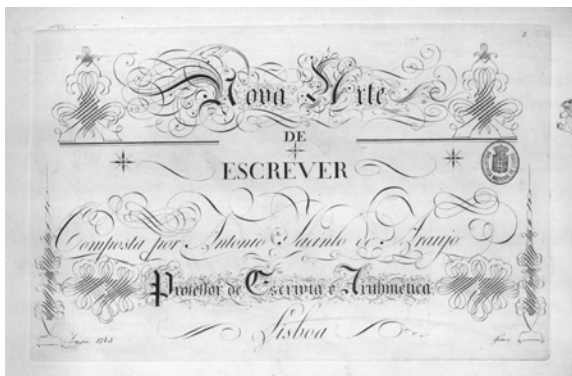 2
Nova Arte
DE
ESCREVER
Composta por Antonio Jacinto de Araujo
Professor de Escripta e Arithmetica
Lisboa